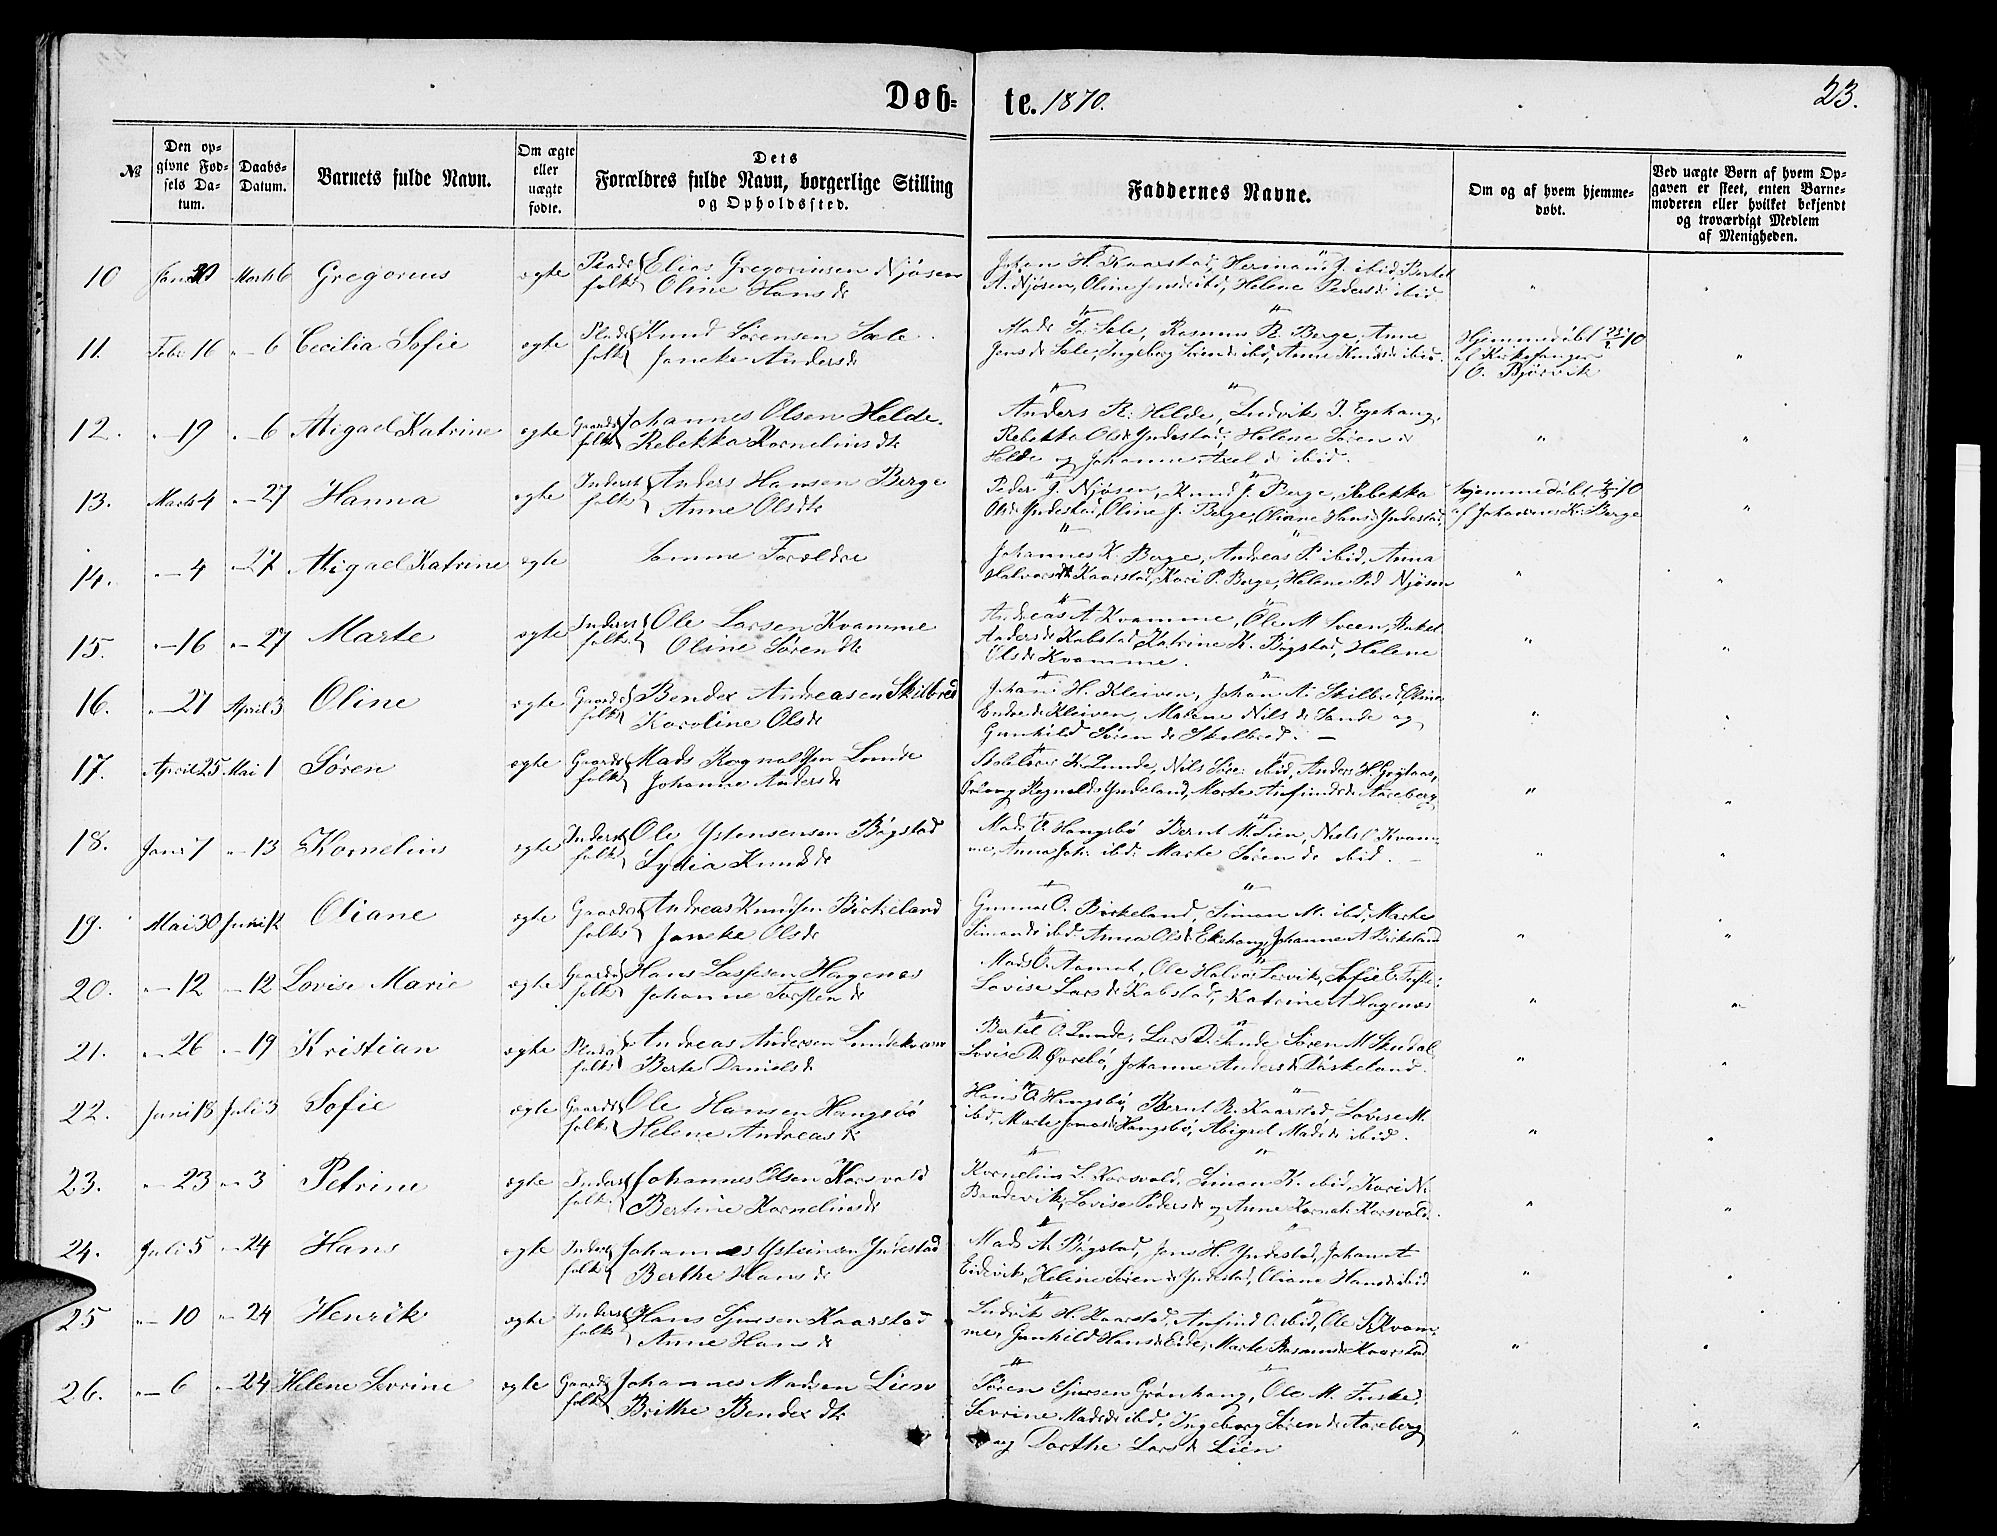 Døb-
te. 1870.
23.
№
Den op-
givne Fød-
sels Da-
tum.
Daabs-
Datum.
Barnets fulde Navn.
Om ægte
eller
uægte
fødte.
Dets
Forældres fulde Navn, borgerlige Stilling
og Opholdssted.
Faddernes Navne.
Om og af hvem hjemme-
døbt.
Ved uægte Børn af hvem Op-
gaven er skeet, enten Barne-
moderen eller hvilket bekjendt
og troværdigt Medlem
af Menigheden.
10 Marts 6 Gregorius ægte Plads folk Elias Gregoriusen Njøsen
Oline Hansdt
Johan H. Kaarstad, Herman J. ibid, Bertel
A. Njøsen, Oline Jensdt ibid, Helene Pedersdt ibid
11. Febr 16 " 6 Cecilia Sofie ægte Plads folk Knud Sørensen Sæle
Janeke Andersdt
Mads T. Sele, Rasmus R. Berge, Anne
Jensdt Sele, Ingeborg Sørendt ibid, Anne Knudsdt ibid.
Hjemmedøbt
af Kirkesanger
O. Bjørvik
12. " 19 " 6 Abigael Katrine ægte Gaards folk Johannes Olsen Helde.
Rebekka Korneliusdt
Anders R. Helde, Ludvik J. Egehaug,
Rebekka Olsdt Yndestad, Helene Sørendt
Helde og Johanne Axeldt ibid.
13. Marts 4 " 27 Hanna ægte Inderst folk Anders Hansen Berge
Anne Olsdt
Peder J. Njøsen, Knud J. Berge, Rebekka
Olsdt Yndestad, Oline J. Berge, Oliane Hansd Yndestad
hjemmedøbt 4/3 70
af Johannes K. Berge
14. " 4 " 27 Abigael Katrine ægte Samme Forældre
Johannes K. Berge, Andreas P. ibid, Anna
Halvorsdt Kaarstad, Kari P. Berge, Helene Ped Njøsen
15. " 16 " 27 Marte ægte Inderst folk Ole Larsen Kvamme
Oline Sørendt
Andreas A Kvamme, Ole M Sveen,
Andersdt Kobstad, Katrine K. Bøgstad, Helene
Olsdt Kvamme.
16. " 27 April 3 Oline ægte Gaards folk Bendex Andreasen Skilbred
Karoline Olsdt
Johan H. Kleiven, Johan A. Skilbred, Oline
Endredt Kleiven, Malene Nilsdt Sande og
Gunhild Sørendt Skilbred. —
17. April 25 Mai 1 Søren ægte Gaards folk Mads Rognaldsen Lunde
Johanne Andersdt
K. Lunde, Nils Sør. ibid, Anders H. Grytaas,
Rognaldsd Yndeland, Marte Anfindsdt Aareberg
18. Jan 7 " 13 Kornelius ægte Inderst folk Ole Ystensensen Bøgstad
Lydia Knudsdt
Mads O. Hangsbø Bernt M. Lien, Niels C Kvam-
me, Anna Joh. ibid. Marte Sørendt ibid.
19. Mai 30 Juni 12 Oliane ægte Gaards folk Andreas Knudsen Birkeland
Janeke Olsdt
Gunnar O. Birkeland, Simon M. ibid, Marte
Simonsdt ibid. Anna Olsdt Ekehaug, Johanne A Birkeland
20. " 12 " 12 Lovise Marie ægte Gaards folk Hans Lassesen Hagenæs
Johanne Torstendt
Mads O. Aamot, Ole Halvor Lervik, Sofie E. Tefte,
Lovise Larsdt Kobstad, Katrine A Hagenæs
21. " 26 " 19 Kristian ægte Plads folk Andreas Andersen Lundekvam
Berte Danielsdt
Bertel O. Lunde, Lars D. Lunde Søren M Skudal,
Lovise D. Øvrebø, Johanne Andersdt Løskeland.
22. Juni 13 Juli 3 Sofie ægte Gaards folk Ole Hansen Hangsbø
Helene Andreasdt
Hans O. Hangsbø, Bernt R. Kaarstad, Lovise M.
ibid, Marte Jonasdt Hangsbø, Abigael Madsdt ibid.
23. " 23 " 3 Petrine ægte Inderst folk Johannes Olsen Korsvold
Bertine Korneliusdt
Kornelius L. Korsvold, Simon K. ibid, Kari N.
Bondevik, Lovise Pedersdt og Anne Kornelt Korsvold.
24. Juli 5 " 24 Hans ægte Inderst folk Johannes Ysteinsen Yndestad
Berthe Hansdt
Mads A. Bøgstad, Jens H. Yndestad, Johan A
Eidevik, Helene Sørendt Yndestad, Oliane Hansdt ibid
25 " 10 " 24 Henrik ægte Inderst folk Hans Sjursen Kaarstad
Anne Hansdt
Ludvik H. Kaarstad, Anfind O. ibid, Ole S. Kvam-
me, Gunhild Hansdt Eide, Marte Rasmusdt Kaarstad
26. " 6 " 24 Helene Sevrine ægte Gaards folk Johannes Madsen Lien
Brithe Bendexdt
Søren Sjursen Grønhaug, Ole M. Fuske,
Sevrine Madsdt ibid, Ingeborg Sørendt Aareberg
og Dorthe Larsdt Lien